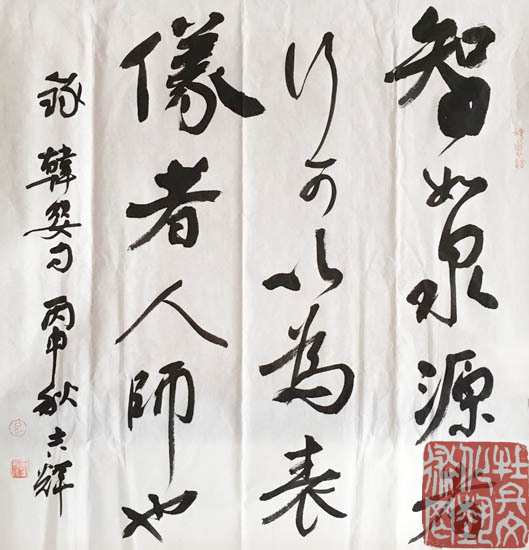 智如泉源
行可以為表
儀者人師也
錄韓嬰句丙申秋輝